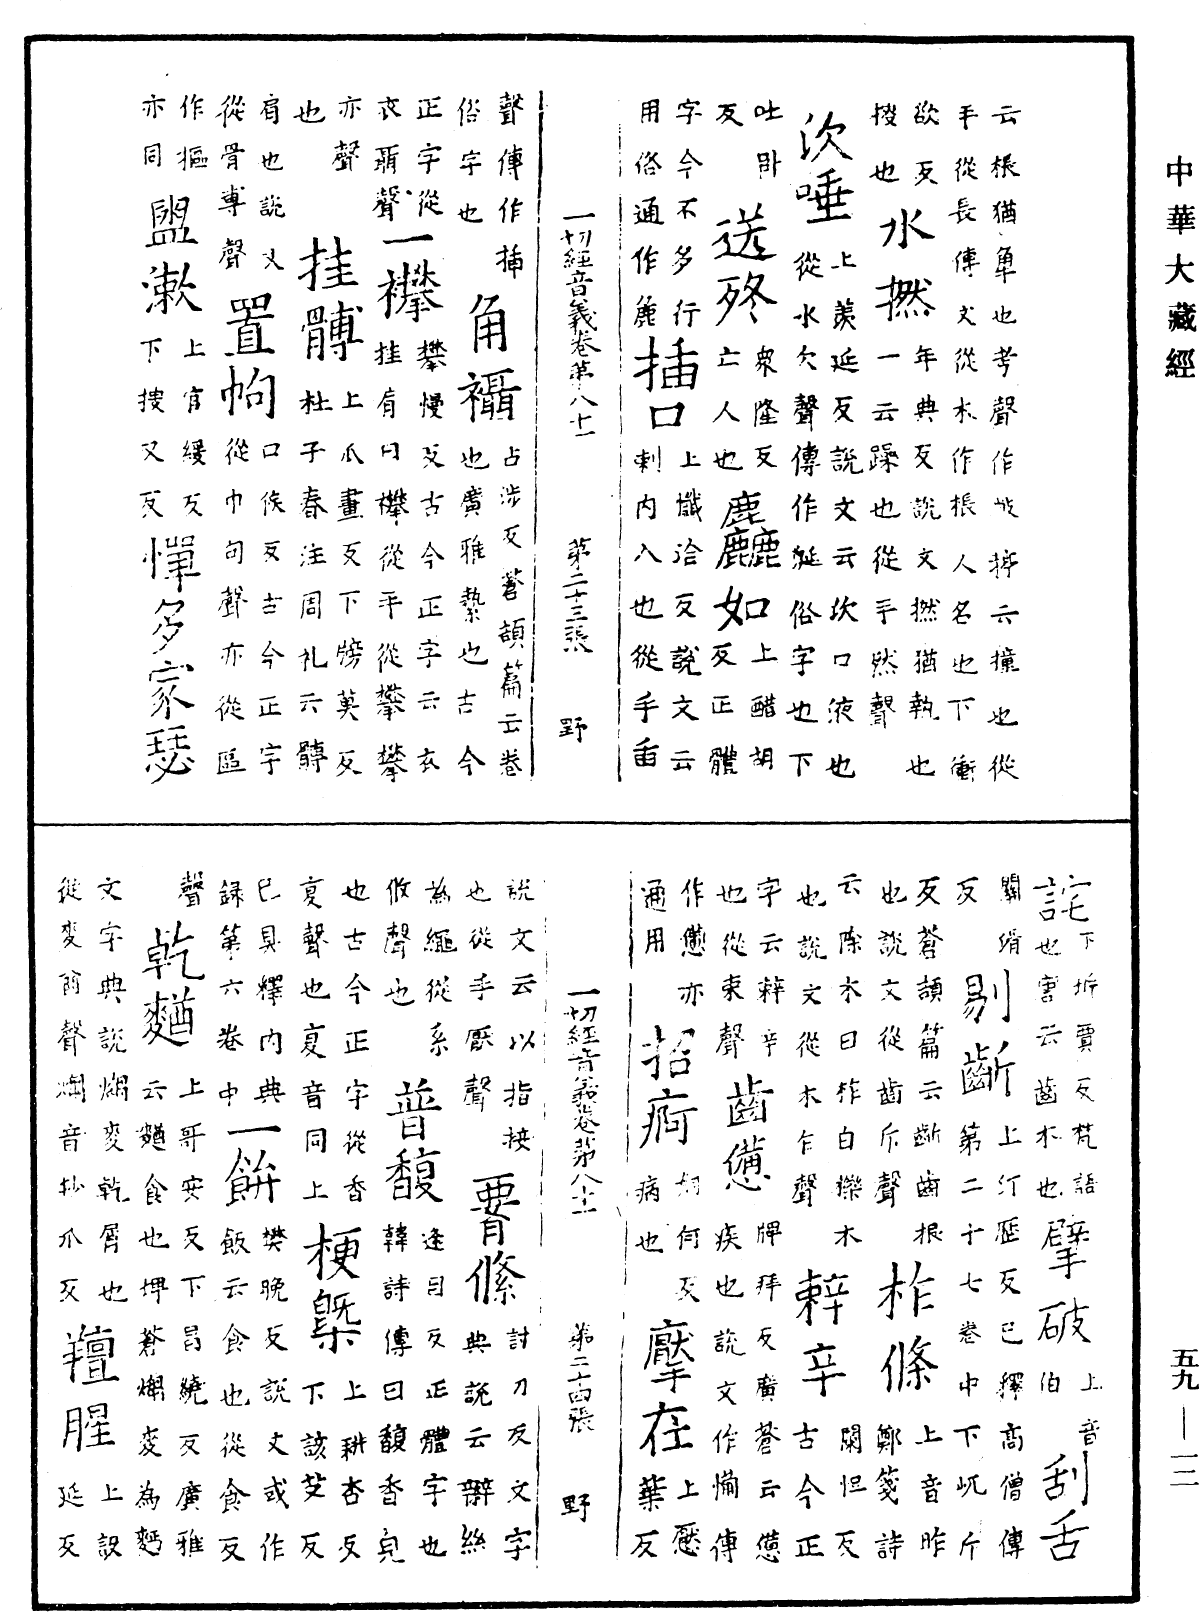 中華大藏經
云棖猶𢴤也考聲作㪇捀云撞也從
手從長傳文從木作棖人名也下衝
欲反
年典反說文撚猶執也
撥也 水撚 一云蹂也從手然聲
㳄唾 上羨延反說文云㳄口液也
從水欠聲傳作涎俗字也下
吐卧反 送終 衆隆反亡人也 麤如 上醋胡反正體
字今不多行
用俗通作麁 插口 上懺洽反說文云
刺內入也從手臿
一切經音義卷第八十一 第二十三張 野
聲傳作揷
俗字也 角襵 占涉反蒼頡篇云卷
也廣雅縶也古今
正字從
衣聶聲 一襻 攀慢反古今正字云衣
襻挂肩曰襻從手從攀攀
亦聲
也 挂髆 上瓜畫反下牓莫反
杜子春注周礼云髆
肩也說文
從骨專聲 置㡄 口候反古今正字
從巾句聲亦從區
作摳
亦同 盥漱 上官緩反
下搜又反 憚多家瑟
詫 下坼賈反梵語
也唐云齒木也 擘破 上音
伯 刮舌
關滑
反 剔齗 上汀歷反已釋高僧傳
第二十七卷中下𡵆斤
反蒼頡篇云齗齒根
也說文從齒斤聲 柞條 上音昨
鄭箋詩
云除木曰柞白櫟木
也說文從木乍聲 辢辛 闌怛反
古今正
字云辢辛
也從束聲 齒憊 牌拜反廣蒼云憊
疾也說文作㥶傳
作憊亦
通用 招痾 㚙何反
病也 擪在 上厭
葉反
說文云以指按
也從手厭聲 胥絛 討刀反文字
典說云辮絲
為繩從糸
攸聲也 普馥 逢目反正體字也
韓詩傳曰馥香皃
也古今正字從香
复聲也复音同上 梗槩 上耕杏反
下該艾反
已具釋內典
録第六卷中 一餅 樊晚反說文或作
飯云食也從食反
聲 乾麨 上哥安反下昌繞反廣雅
云麨食也埤蒼爛麥為麫
文字典說爛麥乾屑也
從麥酋聲爛音抄爪反 羶腥 上設
延反
一切經音義卷第八十一 第二十四張 野
五九—一二